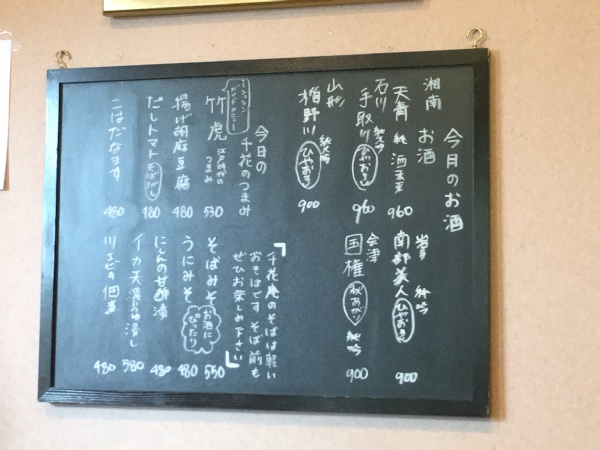 今月のお酒
湘南 お酒
天青 純 酒未来 960
石川 手取川 純大吟 ひやおろし 960
山形 楯野川 純大吟 ひやおろし 900
岩手 純吟
南部美人 ひやおろし 900
会津
国権 秋あがり 純吟 900
「千花庵のそばは軽い
おそばです そば前も
ぜひお楽しみ下さい」
今日の
千花のつまみ
ミシュラン
ガイドメニュー
竹虎 江戸時代の
つまみ 530
揚げ胡麻豆腐 480
だしトマト そばだし 480
こはだなます 480
そばみそ 550
うにみそ お酒に
ぴったり 480
にしんの甘酢漬 480
イカ天 濃つゆ浸し 580
川えびの佃煮 480